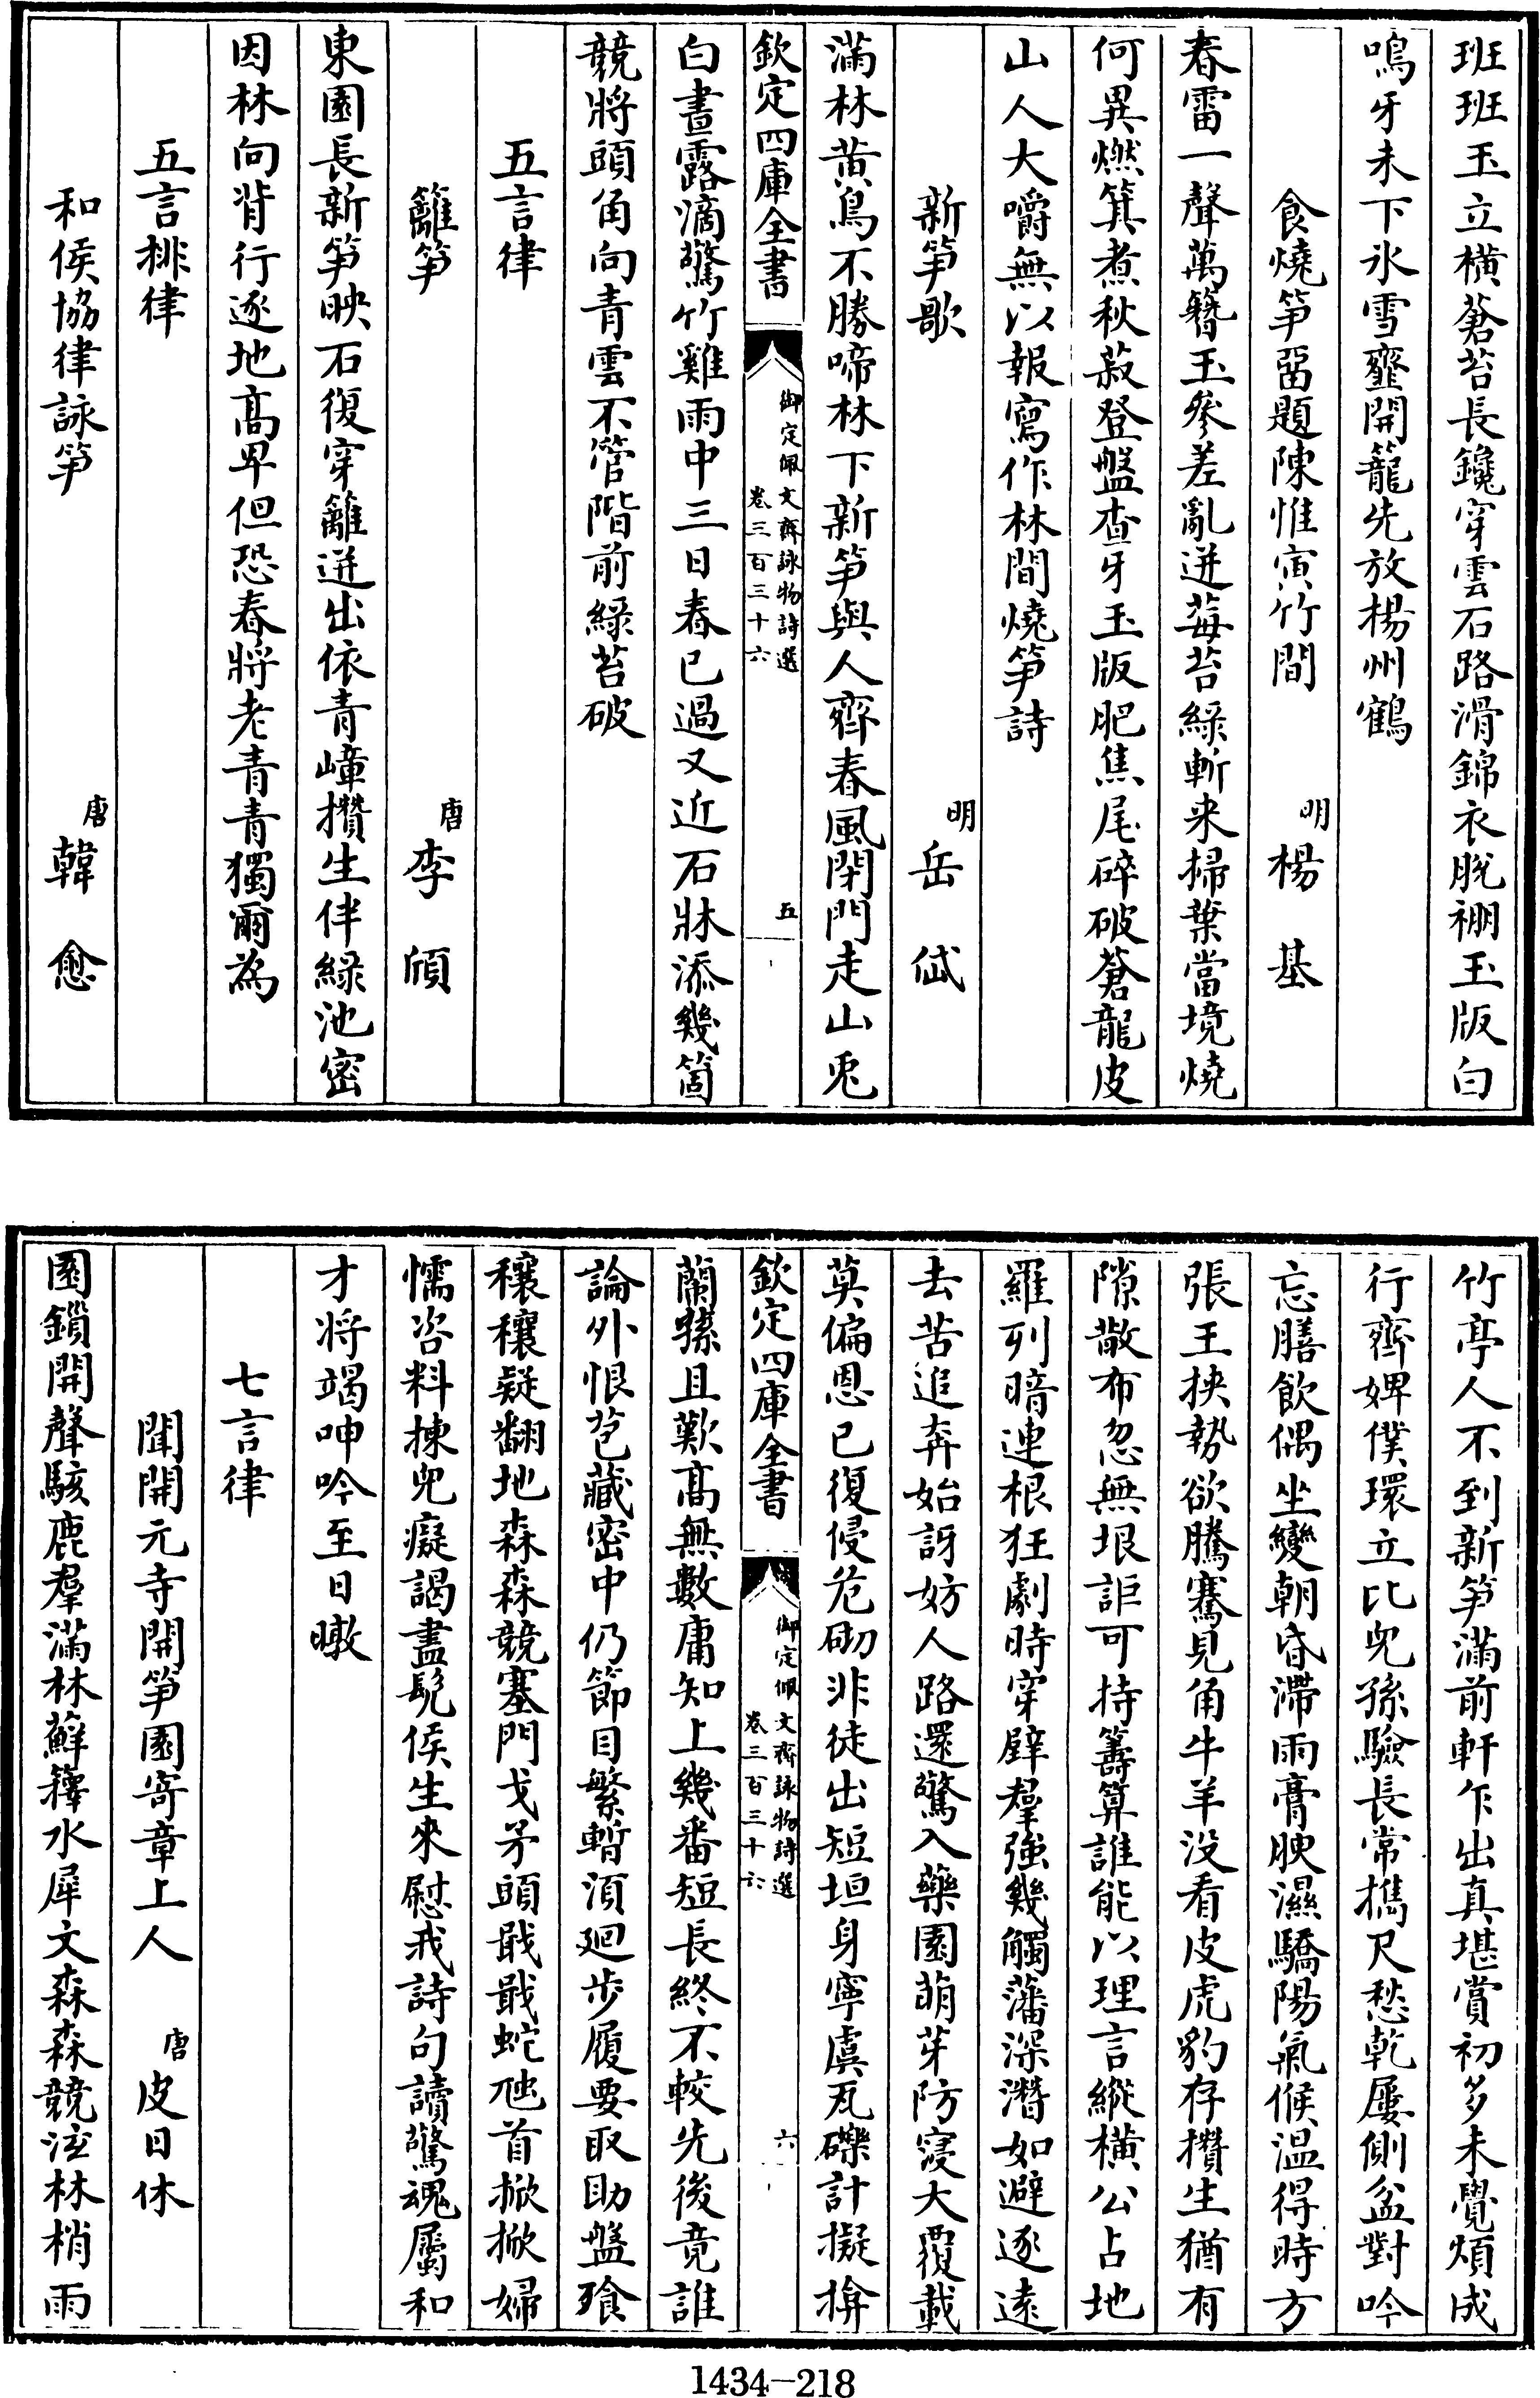 班班玉立横蒼苔長鑱穿雲石路滑錦衣脱裯玉版白
鳴牙未下氷雪虀開籠先放楊州鶴
食燒笋畱題陳惟寅竹間
明楊基
春雷一聲萬簪玉參差亂迸莓苔綠斬来掃葉當境燒
何異燃箕煮秋菽登盤查牙玉版肥焦尾碎破蒼龍皮
山人大嚼無以報寫作林間燒笋詩
新笋歌
明岳岱
滿林黄鳥不勝啼林下新笋與人齊春風閉門走山兎
欽定四庫全書
御定佩文齋詠物詩選
卷三百三十六
五
白晝露滴驚竹雞雨中三日春已過又近石牀添幾箇
競將頭角向青雲不管階前綠苔破
五言律
籬笋
唐李頎
東園長新笋映石復穿籬迸出依青嶂攢生伴綠池密
因林向背行逐地髙卑但恐春將老青青獨爾為
五言排律
和侯協律詠笋
唐韓愈
竹亭人不到新笋滿前軒乍出真堪賞初多未覺煩成
行齊婢僕環立比兒孫驗長常擕尺愁乾屢側盆對吟
忘膳飲偶坐變朝昏滯雨膏腴濕驕陽氣候温得時方
張王挾勢欲騰騫見角牛羊没看皮虎豹存攢生猶有
隙散布忽無垠詎可持籌算誰能以理言縱横公占地
羅列暗連根狂劇時穿壁羣強幾觸藩深潛如避逐遠
去苦追奔始訝妨人路還驚入藥園萌芽防寖大覆載
莫偏恩已復侵危砌非徒出短垣身寧虞瓦礫計擬揜
欽定四庫全書
御定佩文齋詠物詩選
卷三百三十六
六
蘭蓀且歎髙無數庸知上幾番短長終不較先後竟誰
論外恨苞藏密中仍節目繁暫須廻步履要取助盤飱
穰穰疑翻地森森競塞門戈矛頭戢戢蛇虺首掀掀婦
懦咨料揀兒癡謁盡髠侯生來慰我詩句讀驚魂屬和
才將竭呻吟至日暾
七言律
聞開元寺開笋園寄章上人
唐皮日休
園鎖開聲駭鹿羣滿林蘚籜水犀文森森競泫林梢雨
1434-218